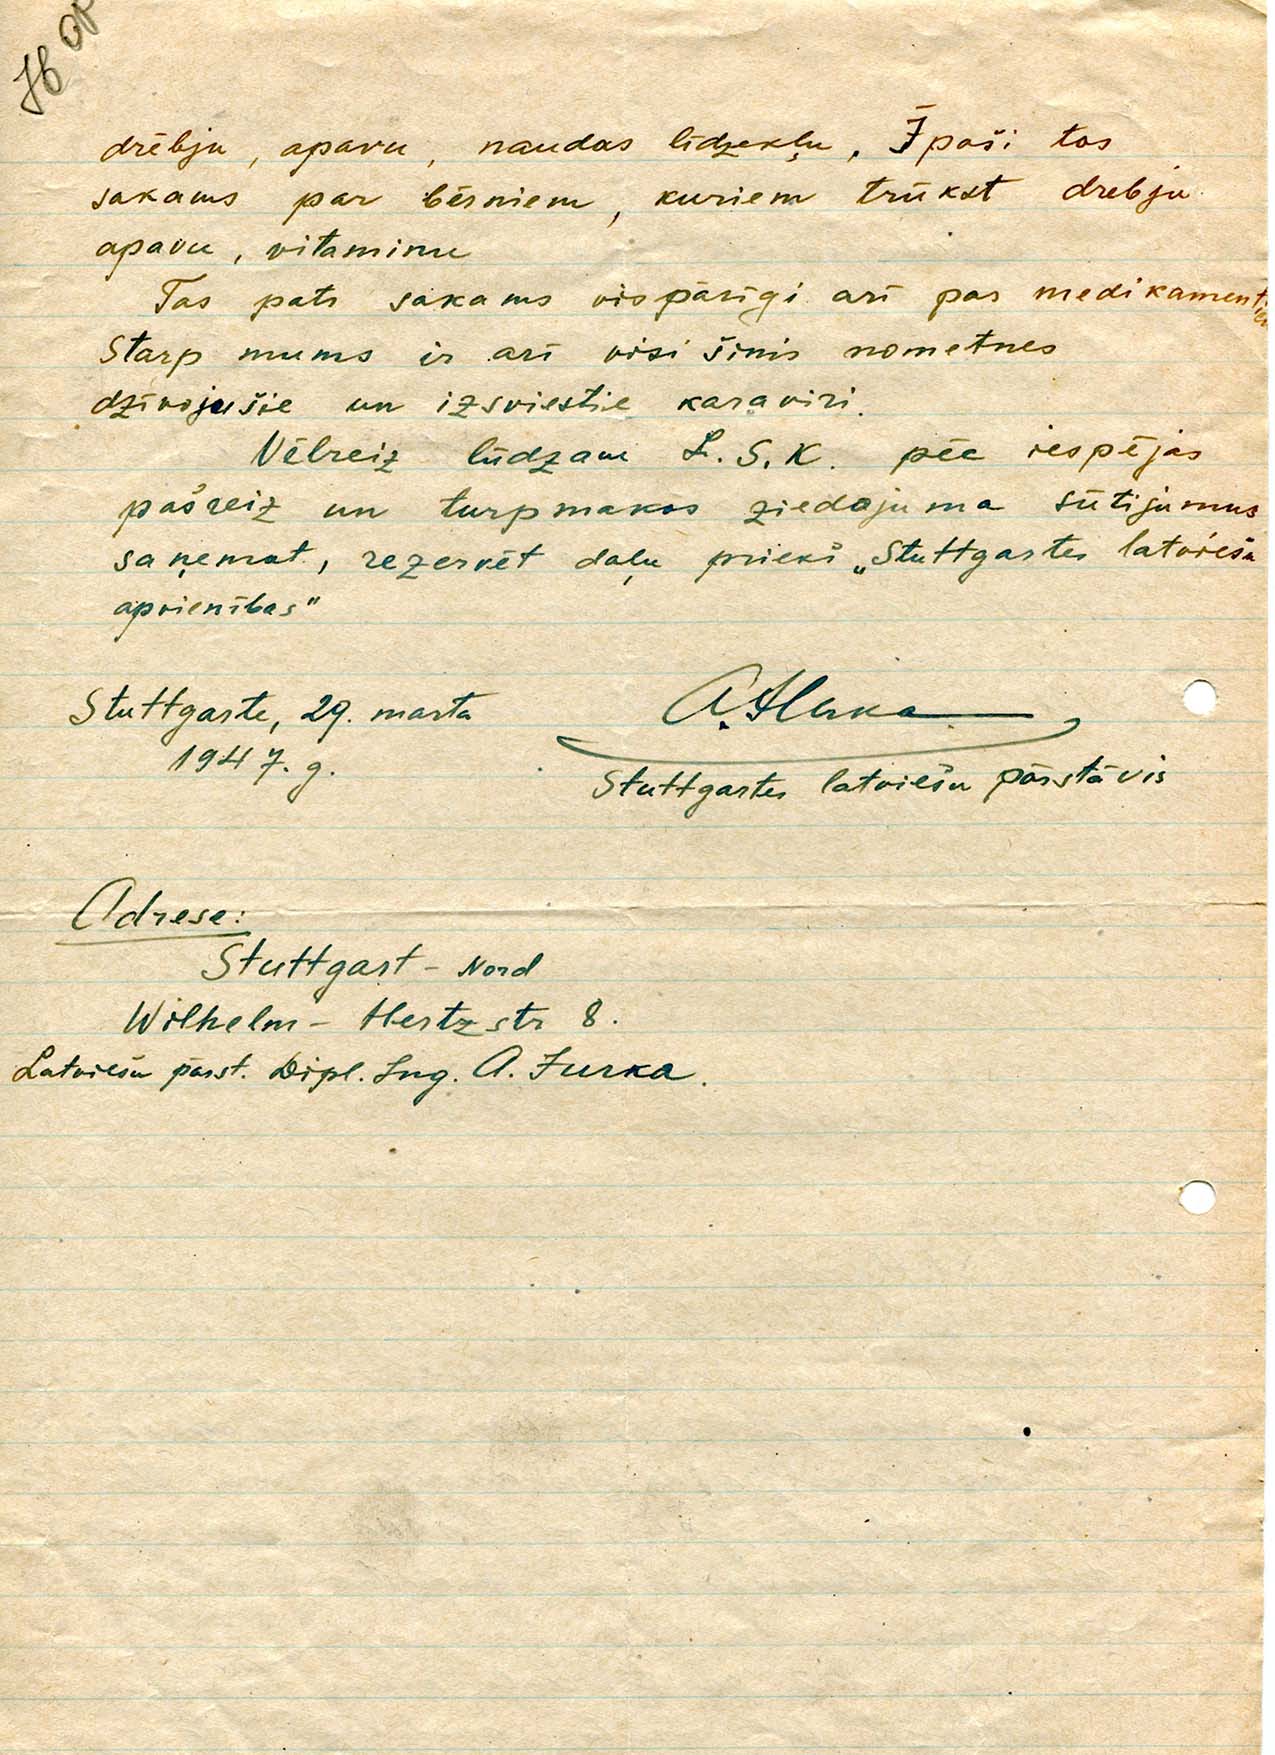 drēbju, apavu, naudas līdzekļu. Īpaši tas
sakams par bērniem, kuriem trūkst drebju
apavu, vitaminu
Tas pats sakams vispārīgi arī par medikamentiem
Starp mums ir arī visi šinīs nometnes
dzīvojušie un izsviestie karaviri.
Vēlreiz lūdzam L.S.K. pēc iespējas
pašreiz un turpmakos ziedojuma sūtijumus
saņemot, rezervēt daļu priekš „Stuttgartes latviešu
apvienības"
Stuttgarte, 29. marta
1947. g.
Stuttgartes latviešu pārstāvis
Adrese:
Stuttgart - Nord
Wilhelm - Hertz str 8.
Latviešu pārst. Dipl. Ing. A. Jurka.